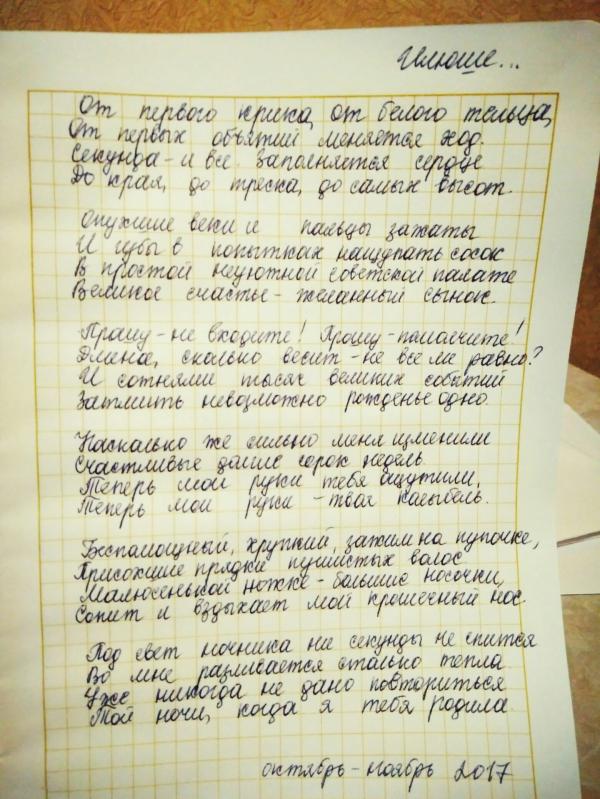 Илюше...
От первого крика, от белого тельца,
От первых объятий меняется ход.
Секунда - и все заполняется сердце
До края, до треска, до самых высот.
Опухшие веки и пальцы зажаты
И губы в попытках нащупать сосок
В простой неуютной советской палате
Великое счастье - желанный сынок.
Прошу - не входите! Прошу - помолчите!
Длина, сколько весит - не все ли равно?
И сотнями тысяч великих событий
Затмить невозможно рожденье одно.
Насколько же сильно меня изменили
Счастливые долгие сорок недель.
Теперь мои руки тебя ощутили,
Теперь мои руки - твоя колыбель.
Беспомощный, хрупкий, зажим на пупочке,
Присохшие прядки пушистых волос
Малюсенькой ножке - большие носочки,
Сопит и вздыхает мой крошечный нос.
Под свет ночника ни секунды не спится
Во мне разливается столько тепла
Уже никогда не дано повториться
Той ночи, когда я тебя родила.
октябрь - ноябрь 2017